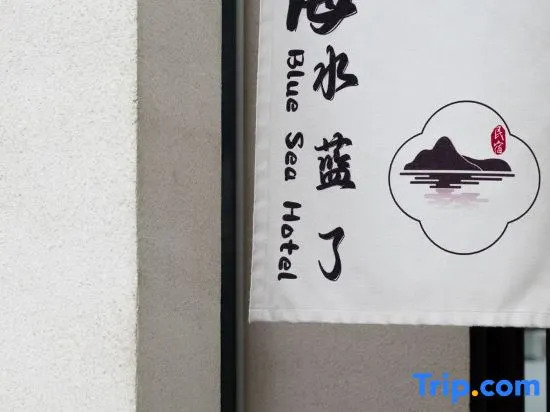 海水蓝了
Blue Sea Hotel
民宿
Trip.com